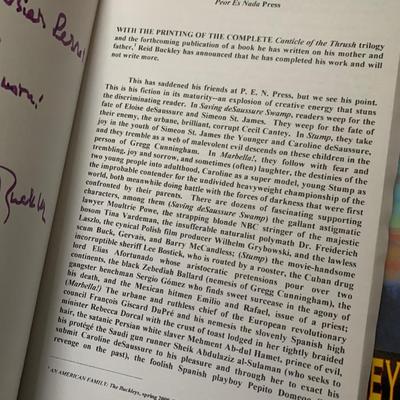 Peor Es Nada Press
WITH THE PRINTING OF THE COMPLETE Canticle of the Thrush trilogy
and the forthcoming publication of a book he has written on his mother and
father,¹ Reid Buckley has announced that he has completed his work and will
not write more.
This has saddened his friends at P. E. N. Press, but we see his point.
This is his fiction in its maturity—an explosion of creative energy that stuns
the discriminating reader. In Saving deSaussure Swamp, readers weep for the
fate of Eloise deSaussure and Simeon St. James. They weep for the fate of
their enemy, the urbane, brilliant, corrupt Cecil Cantey. In Stump, they take
joy in the youth of Simeon St. James the Younger and Caroline deSaussure,
and they tremble as a web of malevolent evil descends on these children in the
person of Gregg Cunningham. In Marbella!, they follow with fear and
trembling, joy and sorrow, and sometimes (often) laughter, the destinies of the
two young people into adulthood, Caroline as a super model, young Stump as
the improbable contender for the undivided heavyweight championship of the
world, both meanwhile doing battle with the forces of darkness that were first
confronted by their parents. There are dozens of fascinating supporting
characters, among them (Saving deSaussure Swamp) the gallant astigmatic
lawyer Moultrie Powe, the strapping blonde NBC stringer of the majestic
bosom Tina Vardeman, the insufferable naturalist polymath Dr. Freiderich
Laszlo, the cynical Polish film producer Wilhelm Grybowski, and the lawless
scum Buck, Gervais, and Barry McCandless; (Stump) the movie-handsome
incorruptible sheriff Lee Bostick, who is routed by a rooster, the Cuban drug
lord Elias Afortunado whose aristocratic pretensions pour over two
continents, the black Zebediah Ballard (nemesis of Gregg Cunningham), the
gangster henchman Sergio Gómez who finds sweet surcease in the agony of
his death, and the Mexican hitmen Emilio and Rafael, issue of a priest;
(Marbella!) The urbane and ruthless chief of the European revolutionary
council François Giscard DaPré and his nemesis the slovenly Spanish high
minister Rebecca Dorcal with the crust of toast lodged in her tightly braided
hair, the satanic Persian white slaver Mehmet Abdul Hamet, prince of evil,
his protégé the Saudi gun runner Sheik Abdulaziz al-Sulaman (who seeks to
submit Caroline deSaussure to his pleasure and through her to exact his
revenge on the past), the foolish Spanish playboy Pepito Domeqe
¹ AN AMERICAN FAMILY: The Buckleys, spring 200